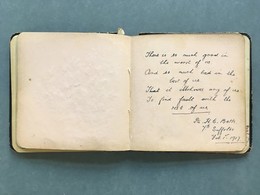 There is so much good in
the worst of us
And so much bad in the
best of us
That it behoves any of us
To find fault with the
rest of us
Pte. H. E. Ball
7th Suffolks
1919